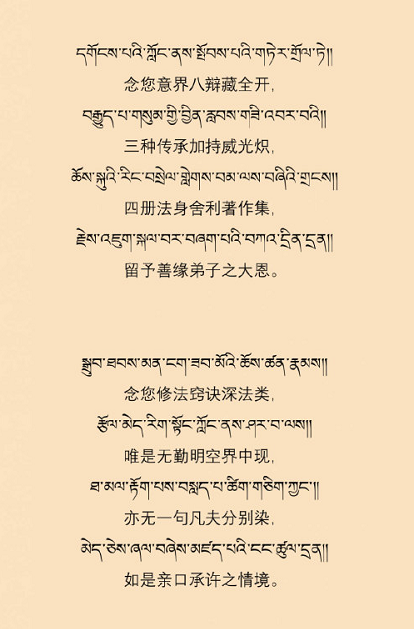 དགོངས་པའི་ཀློང་ནས་སྤོབས་པའི་གཏེར་གྲོལ་ཏེ།།
念您意界八辩藏全开，
བརྒྱུད་པ་གསུམ་གྱི་བྱིན་རླབས་གཟི་འབར་བའི།།
三种传承加持威光炽，
ཆོས་སྐུའི་རིང་བསྲེལ་གླེགས་བམ་ལས་བཞིའི་གྲངས།།
四册法身舍利著作集，
རྗེས་འཇུག་སྐལ་བར་བཞག་པའི་བཀའ་དྲིན་དྲན།།
留予善缘弟子之大恩。
སྒྲུབ་ཐབས་མན་ངག་ཟབ་མོའི་ཆོས་ཚན་རྣམས།།
念您修法窍诀深法类，
རྩོལ་མེད་རིག་སྟོང་ཀློང་ནས་ཤར་བ་ལས།།
唯是无勤明空界中现，
ཐ་མལ་རྟོག་པས་བསླད་པ་ཚིག་གཅིག་ཀྱང་།།
亦无一句凡夫分别染，
མེད་ཅེས་ཞལ་བཞེས་མཛད་པའི་ངང་ཚུལ་དྲན།།
如是亲口承许之情境。